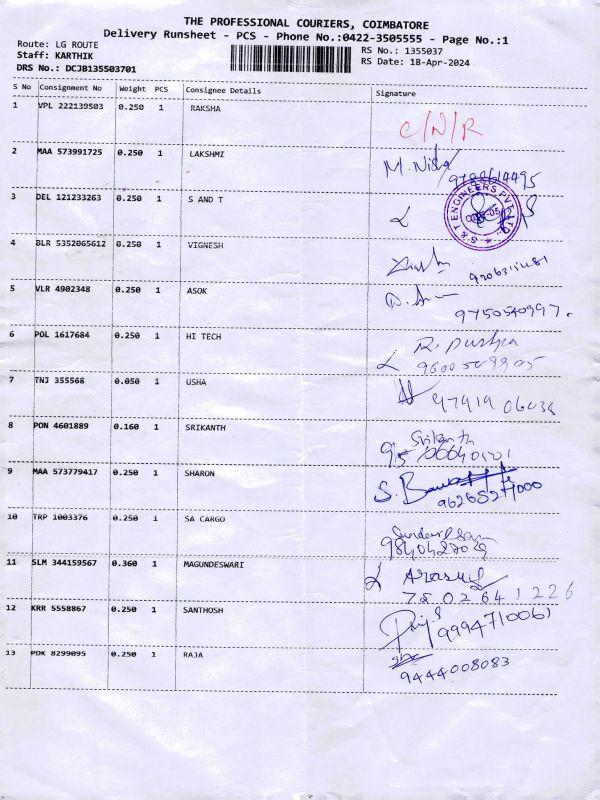 THE PROFESSIONAL COURIERS, COIMBATORE
Delivery Runsheet - PCS - Phone No.:0422-3505555 - Page No.:1
Route: LG ROUTE
RS No.: 1355037
Staff: KARTHIK
RS Date: 18-Apr-2024
DRS No.: DCJB135503701
S No Consignment No Weight PCS Consignee Details Signature
1 VPL 222139503 0.250 1 RAKSHA
C/N/R
2 MAA 573991725 0.250 1 LAKSHMI
M. Nisha
3 DEL 121233263 0.250 1 S AND T
S & T ENGINEERS PVT. LTD.
4 BLR 5352065612 0.250 1 VIGNESH
5 VLR 4902348 0.250 1 ASOK
9750540997.
6 POL 1617684 0.250 1 HI TECH
R. Pushpa
7 TNJ 355568 0.050 1 USHA
8 PON 4601889 0.160 1 SRIKANTH
Srikanth
9 MAA 573779417 0.250 1 SHARON
10 TRP 1003376 0.250 1 SA CARGO
11 SLM 344159567 0.360 1 MAGUNDESWARI
7802641226
12 KRR 5558867 0.250 1 SANTHOSH
9994710061
13 PDK 8299095 0.250 1 RAJA
9444008083